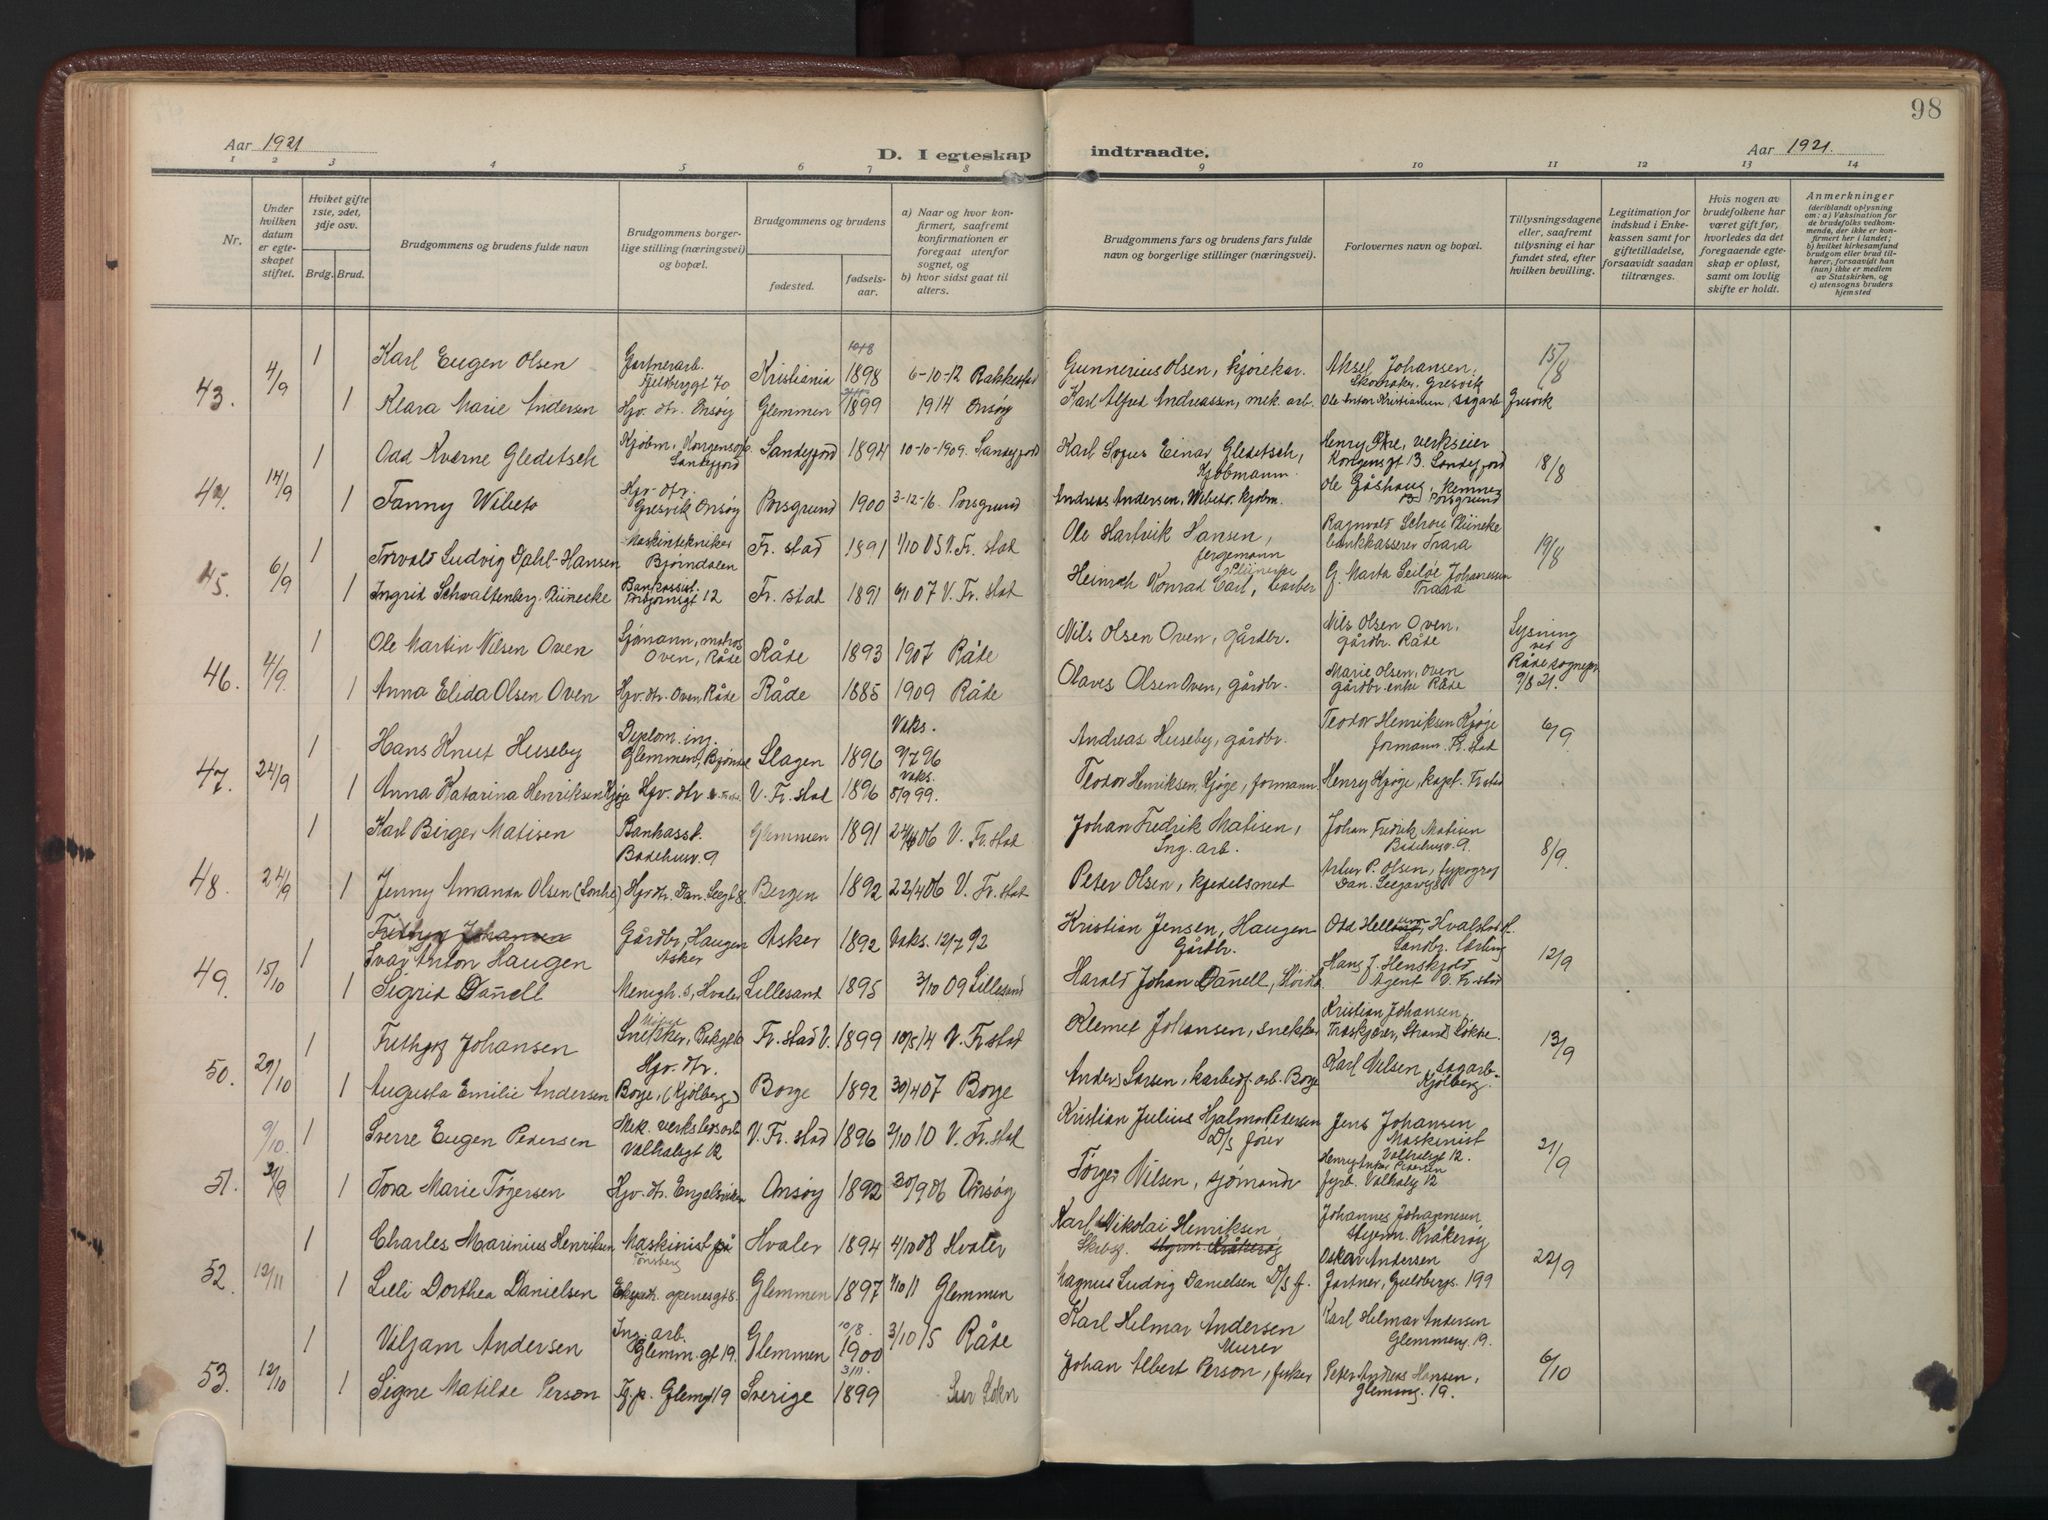 98
Aar 1921
D. I egteskap indtraadte.
Aar 1921.
1 2 3 4 5 6 7 8 9 10 11 12 13 14
Nr.
Under hvilken datum er egteskapet stiftet.
Hviket gifte 1ste, 2det, 3dje osv.
Brdg. Brud.
Brudgommens og brudens fulde navn
Brudgommens borgerlige stilling (næringsvei) og bopæl.
Brudgommens og brudens
fødested.
fødselsaar.
a) Naar og hvor konfirmert, saafremt konfirmationen er foregaat utenfor sognet, og
b) hvor sidst gaat til alters.
Brudgommens fars og brudens fars fulde navn og borgerlige stillinger (næringsvei).
Forlovernes navn og bopæl.
Tillysningsdagene eller, saafremt tilysning ei har fundet sted, efter hvilken bevilling.
Legitimation for indskud i Enkekassen samt for giftetilladelse, forsaavidt saadan tiltrænges.
Hvis nogen av brudefolkene har været gift før, hvorledes da det foregaaende egteskap er opløst, samt om lovlig skifte er holdt.
Anmerkninger
(deriblandt oplysning om: a) Vaksination for de brudefolks vedkommende, der ikke er konfirmert her i landet; b) hvilket kirkesamfund brudgom eller brud tilhører, forsaavidt han (hun) ikke er medlem av Statskirken, og c) utensogns bruders hjemsted
43. 4/9 1 Karl Eugen Olsen Gartnerarb. Kristiania 1898 6-10-12 Rakkestad Gunnerius Olsen, kjørekar. Aksel Johansen, Skomaker, Gresvik 15/8
1 Klara Marie Andersen Hjv. dtr. Onsøy Glemmen 1899 1914 Onsøy Karl Alfred Andreassen, mek. arb. Ole Anton Kristiansen, sagarb. Gresvik
44. 14/9 1 Odd Kværne Gleditsch Kjøbm., Kongensg. Sandefjord Sandefjord 1894 10-10-1909. Sandefjord Karl Sofus Einar Gleditsch, Kjøbmann. Henry verkseier Kongensgt 13. Sandefjord 18/8
1 Fanny Wibeto Hjv. dtr. Gresvik Onsøy Porsgrund 1900 3-12-16. Porsgrund Andreas Andersen, Wibeto. kjøbm. Ole Gåshaug, Kemner Porsgrund
45. 6/9 1 Torvald Ludvig Dahl-Hansen Maskintekniker Bjørndalen Fr. stad 1891 1/10 05 V. Fr. stad Ole Hartvik Hansen, fergemann Ragnvald Schou Plünecke bankkasserer Trara 19/8
1 Ingrid Schwaltenberg Bankassist. Torbjørnsgt 12 Fr. stad 1891 6/1 07 V. Fr. stad Heinrich Konrad Carl, barber G. Marta Johannessen Trara
46. 4/9. 1 Ole Martin Nilsen Oven Sjømann, matros Oven, Råde Råde 1893 1907 Råde Nils Olsen Oven, gårdbr. Nils Olsen Oven, gårdbr. Råde Lysning ved Råde sognepr 9/8 21.
1 Anna Elida Olsen Oven Hjv. dtr. Oven Råde Råde 1885 1909 Råde Olaves Olsen Oven, gårdbr. Marie Olsen, Oven gårdbr. enke Råde
47. 24/9 1 Hans Knut Huseby Diplom. ing. Glemmen, Slagen 1896 Vaks. 9/7 96 Andreas Huseby, gårdbr. Teodor Henriksen Kjøge formann. Fr. stad 6/9
1 Anna Katarina Henriksen Kjøge Hjv. dtr V. Fr. stad 1896 vaks. 8/9 99. Teodor Henriksen, Kjøge, formann Henry Kjøge, kapt. Fr. stad
48. 24/9 1 Karl Birger Matisen Bankasst. Badehusv. 9 Glemmen 1891 22/4 06 V. Fr. stad Johan Fredrik Matisen, Ing. arb. Johan Fredrik Matisen Badehusv. 9. 8/9.
1 Jenny Amanda Olsen Hjv. dtr. Bergen 1892 22/4 06 V. Fr. stad Peter Olsen, kjedelsmed Artur P. Olsen, typograf
49. 15/10 Fridthjof Johansen
1 Ivar Anton Haugen Gårdbr, Haugen Asker Asker 1892 Vaks. 12/7 92 Kristian Jensen, Haugen Gårdbr. Odd Kvalstad st. 12/9
1 Sigrid Danell Menigh. s, Hvaler Lillesand 1895 3/10 09 Lillesand Harald Johan Danell, Hans J. Henskjold Agent V. Fr. stad
50. 29/10 1 Frithjof Johansen Snekker, Fr. stad V. 1899 10/5 14 V. Fr. stad Klemet Johansen, snekker Kristian Johansen, 13/9
1 Augusta Emilie Andersen Hjv. dtr. Borge, (Kjølberg) Borge 1892 30/4 07 Borge Anders Larsen, arb. Borge Karl Nilsen, sagarb. Kjølberg.
51. 9/10. 1 Sverre Eugen Pedersen Mek. verkstedsarb. Valhalsgt 12 V. Fr. stad 1896 2/10 10 V. Fr. stad Kristian Julius Hjalmar Pedersen D/s fører Jens Johansen Maskinist Valhalsgt 12. 21/9
1 Tora Marie Tøgersen Hjv. dtr. Engelsviken Onsøy 1892 30/9 06 Onsøy Tørger Nilsen, sjømand Pedersen fyrb. Valhalsg 12
52. 12/11 1 Charles Marinius Henriksen Maskinist på Tønsberg Hvaler 1894 4/10 08 Hvaler Karl Nikolai Henriksen Johannes Johannesen Styrm. Kråkerøy 22/9
1 Lilli Dorthea Danielsen Glemmen 1897 1/10 11 Glemmen Magnus Ludvig Danielsen D/s f. Oskar Andersen Gartner, Guldbergs. 199
53. 12/10 1 Viljam Andersen Ing. arb. Glemm. gt 19. Glemmen 10/8. 1900 3/10 15 Råde Karl Hilmar Andersen Murer Karl Hilmar Andersen Glemmeng. 19. 6/10
1 Signe Matilde Person Fg. p. Glemgt 19 Sverige 3/11. 1899 Johan Albert Person, fisker Peter Andreas Hansen, Glemmg. 19.